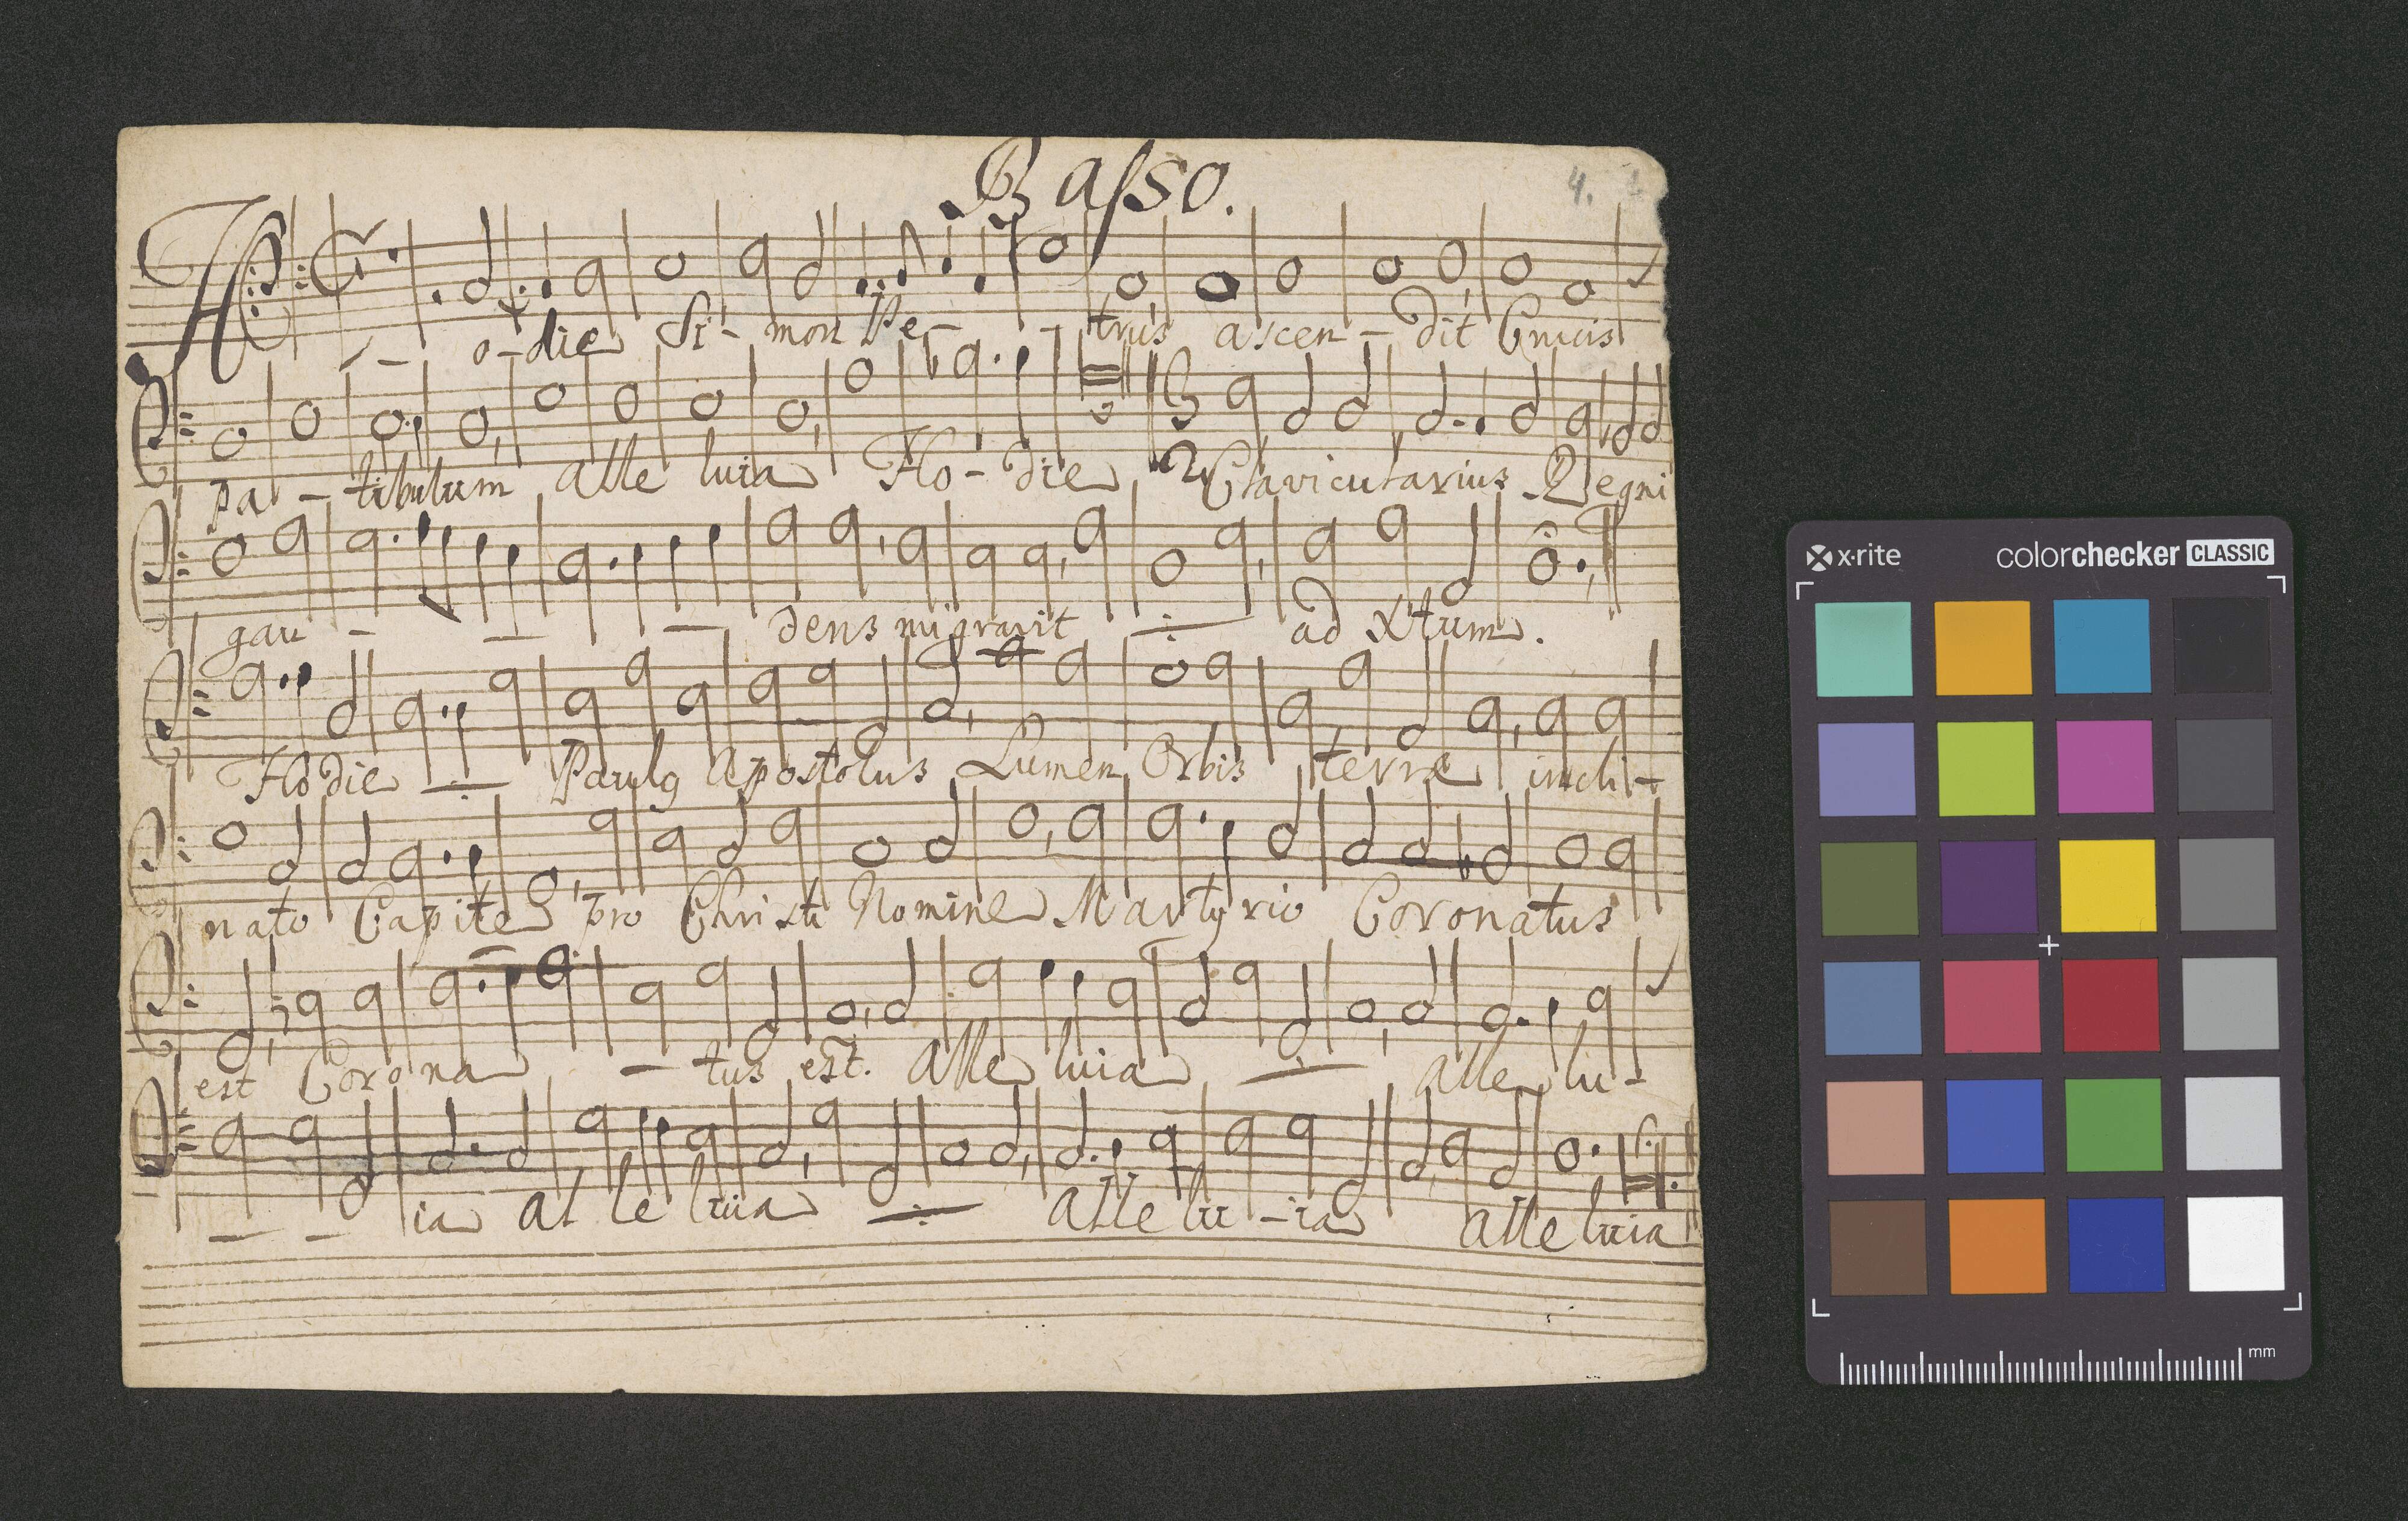 Basso.
4.
H - o-die Si - mon Pe - - trus ascen - dit Crucis
pa - tibulum alle luia Ho - die Clavicularius Regni
gau - - - dens migravit ad Xtum.
Hodie Paulg Apostolus Lumen Orbis terre incli -
nato Capite pro Christi Nomine Martyrio Coronatus
est Corona - tus est. Alle luia alle lu -
- - ia al le luia alle lu - ia alle luia
x·rite colorchecker CLASSIC
mm